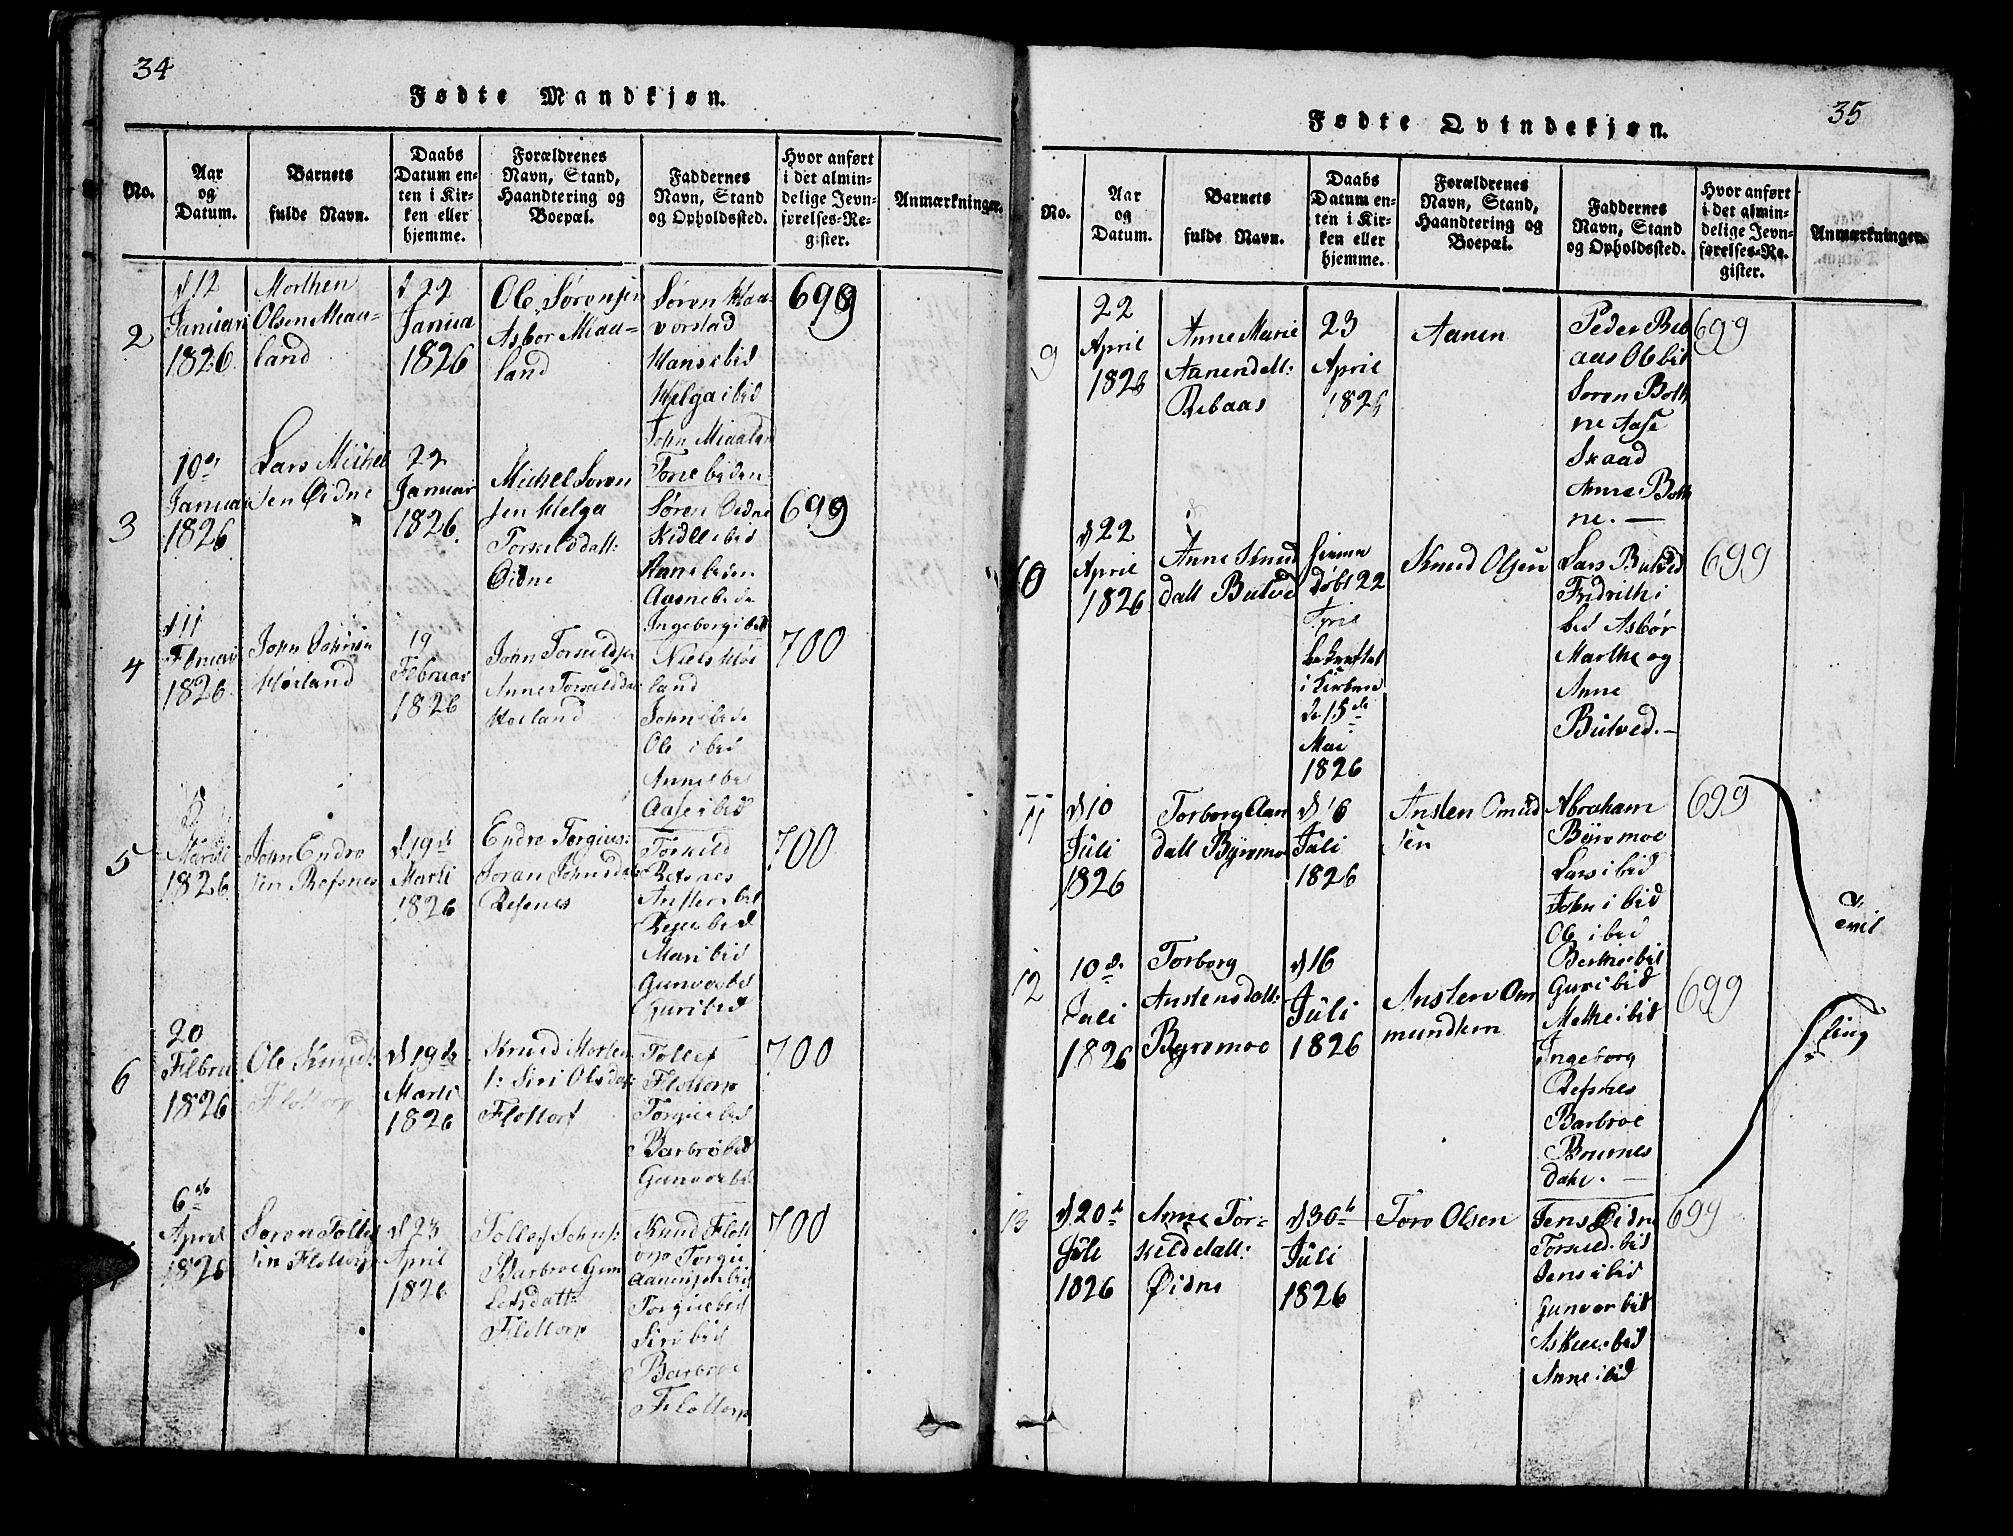 34
Fødte Mandkjøn.
No.
Aar
og
Datum.
Barnets
fulde Navn.
Daabs
Datum en-
ten i Kir-
ken eller
hjemme.
Forældrenes
Navn, Stand,
Haandtering og
Boepæl.
Faddernes
Navn, Stand
og Opholdssted.
Hvor anført
i det almin-
delige Jevn-
førelses-Re-
gister.
Anmærkninger.
2
d 12
Januari
1826.
Morthen
Olsen Meau-
land
d 22
Janua
1826
Ole Sørensen
Asbor Miau-
land
Søren Haa-
vorstad
Hans ibid
Helga ibid
John Miaaland
699
3
10de
Januar
1826
Lars Michel
sen Øidne
22
Januar
1826.
Michel Soren
sen Helga
Torkild datt:
Øidne
Søren Øidne
Kidl ibid
Ingeborg ibid
699
4
d 11
Februari
1826
John Johnsen
Høiland
19
Februar
1826
John Torkildsen
Anne Torkild da
Høiland
Niels Høi
land
John ibid
Ole ibid
Anne ibid
Aase ibid
700
5
5
Marti
1826
John Endre
sen Refsnes
d 19de
Marti
1826
Endre Torgius:
Joran Johnsda
Refsnes
Torkild
Refsnes
Mari ibid
Gunvor ibid
Guri ibid
700
6
20
Febru
1826
Ole Knuds:
Flottorp
d 19de
Marti
1826
Knud Morten
s: Siri Olsdat
Flottorp
Tollef
Flottorp
Torgius ibid
Barbro ibid
Gunvor ibid
700
6de
April
1826
Søren Tollef
sen Flottorp
d 23
April
1826
Barbroe Gun
Flottorp
Knud Flott
orp Torgiu
Torgius ibid
Siri ibid
Barbroe
Flottorp
700
35
Fødte Qvindekjøn.
No.
Aar
og
Datum.
Barnets
fulde Navn.
Daabs
Datum en-
ten i Kir-
ken eller
hjemme.
Forældrenes
Navn, Stand,
Haandtering og
Boepæl.
Faddernes
Navn, Stand
og Opholdssted.
Hvor anført
i det almin-
delige Jevn-
førelses-Re-
gister.
Anmærkninger.
9
22
April
1826
Anne Marie
Aanendatt:
Rebaas
23
April
1826
Aanen
Peder Reb
aas Ole ibid
Soren Both
ne Aase
Skaad
Anne Both
ne. —
699
10
d 22
April
1826
Anne Knud
datt Butved
hiemme
døbt 22
April
bekræftet
i Kirken
de 15de
Mai
1826
Knud Olsen
Lars Butved
Fridrich i
bid Asbør
Marthe og
Anne
Butved. —
699
11
d 10
Juli
1826
Torborg
datt Byremo
d 16
Juli
1826
Ansten Omud
sen
Abraham
Byremoe
Lars ibid
John ibid
Ole ibid
699
12
10de
Juli
1826
Torborg
Anstensdatt:
Byremoe
d 16
Juli
1826
Ansten Om
mundsen
Berthe ibid
Guri ibid
Methe ibid
Ingeborg
Refsnes
Barbroe
699
13
d 20de
Juli
1826
Anne Tor-
kelddatt:
Øidne
d 30de
Juli
1826
Toro Olsen
Jens Øidne
Torkild ibid
Jens ibid
Gunvor ibid
Anne ibid
699